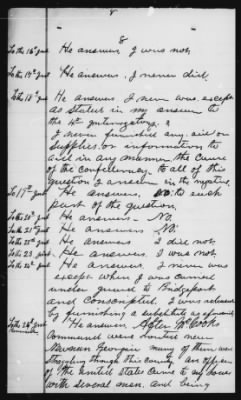 8
8
To the 16th Int He answers, I was not
To the 17th Int He answers, I never did
To the 18th Int He answers I never was except
as stated in my answer to
the 4th Interrogatory. &
I never furnished any aid or
supplies or information to
aid in any manner the cause
of the confederacy. to all of this
question I answer in the negative.
To 19th Int He answers no. to each
part of the question.
To the 20th Int He answers - No.
To the 21st Int He answers No.
To the 22d Int He answers I did not
To the 23 Int He answers, I was not.
To the 24th Int He answers, I never was
except when I was carried
under guard to Bridgeport
and Conscripted. I was released
by furnishing a substitute as aforesaid
To the 24th Int He answers, After McCooks
Command were routed near
Newnan Georgia many of them were
straggling through this County. An officer
of the United States came to my house
with several men, and being